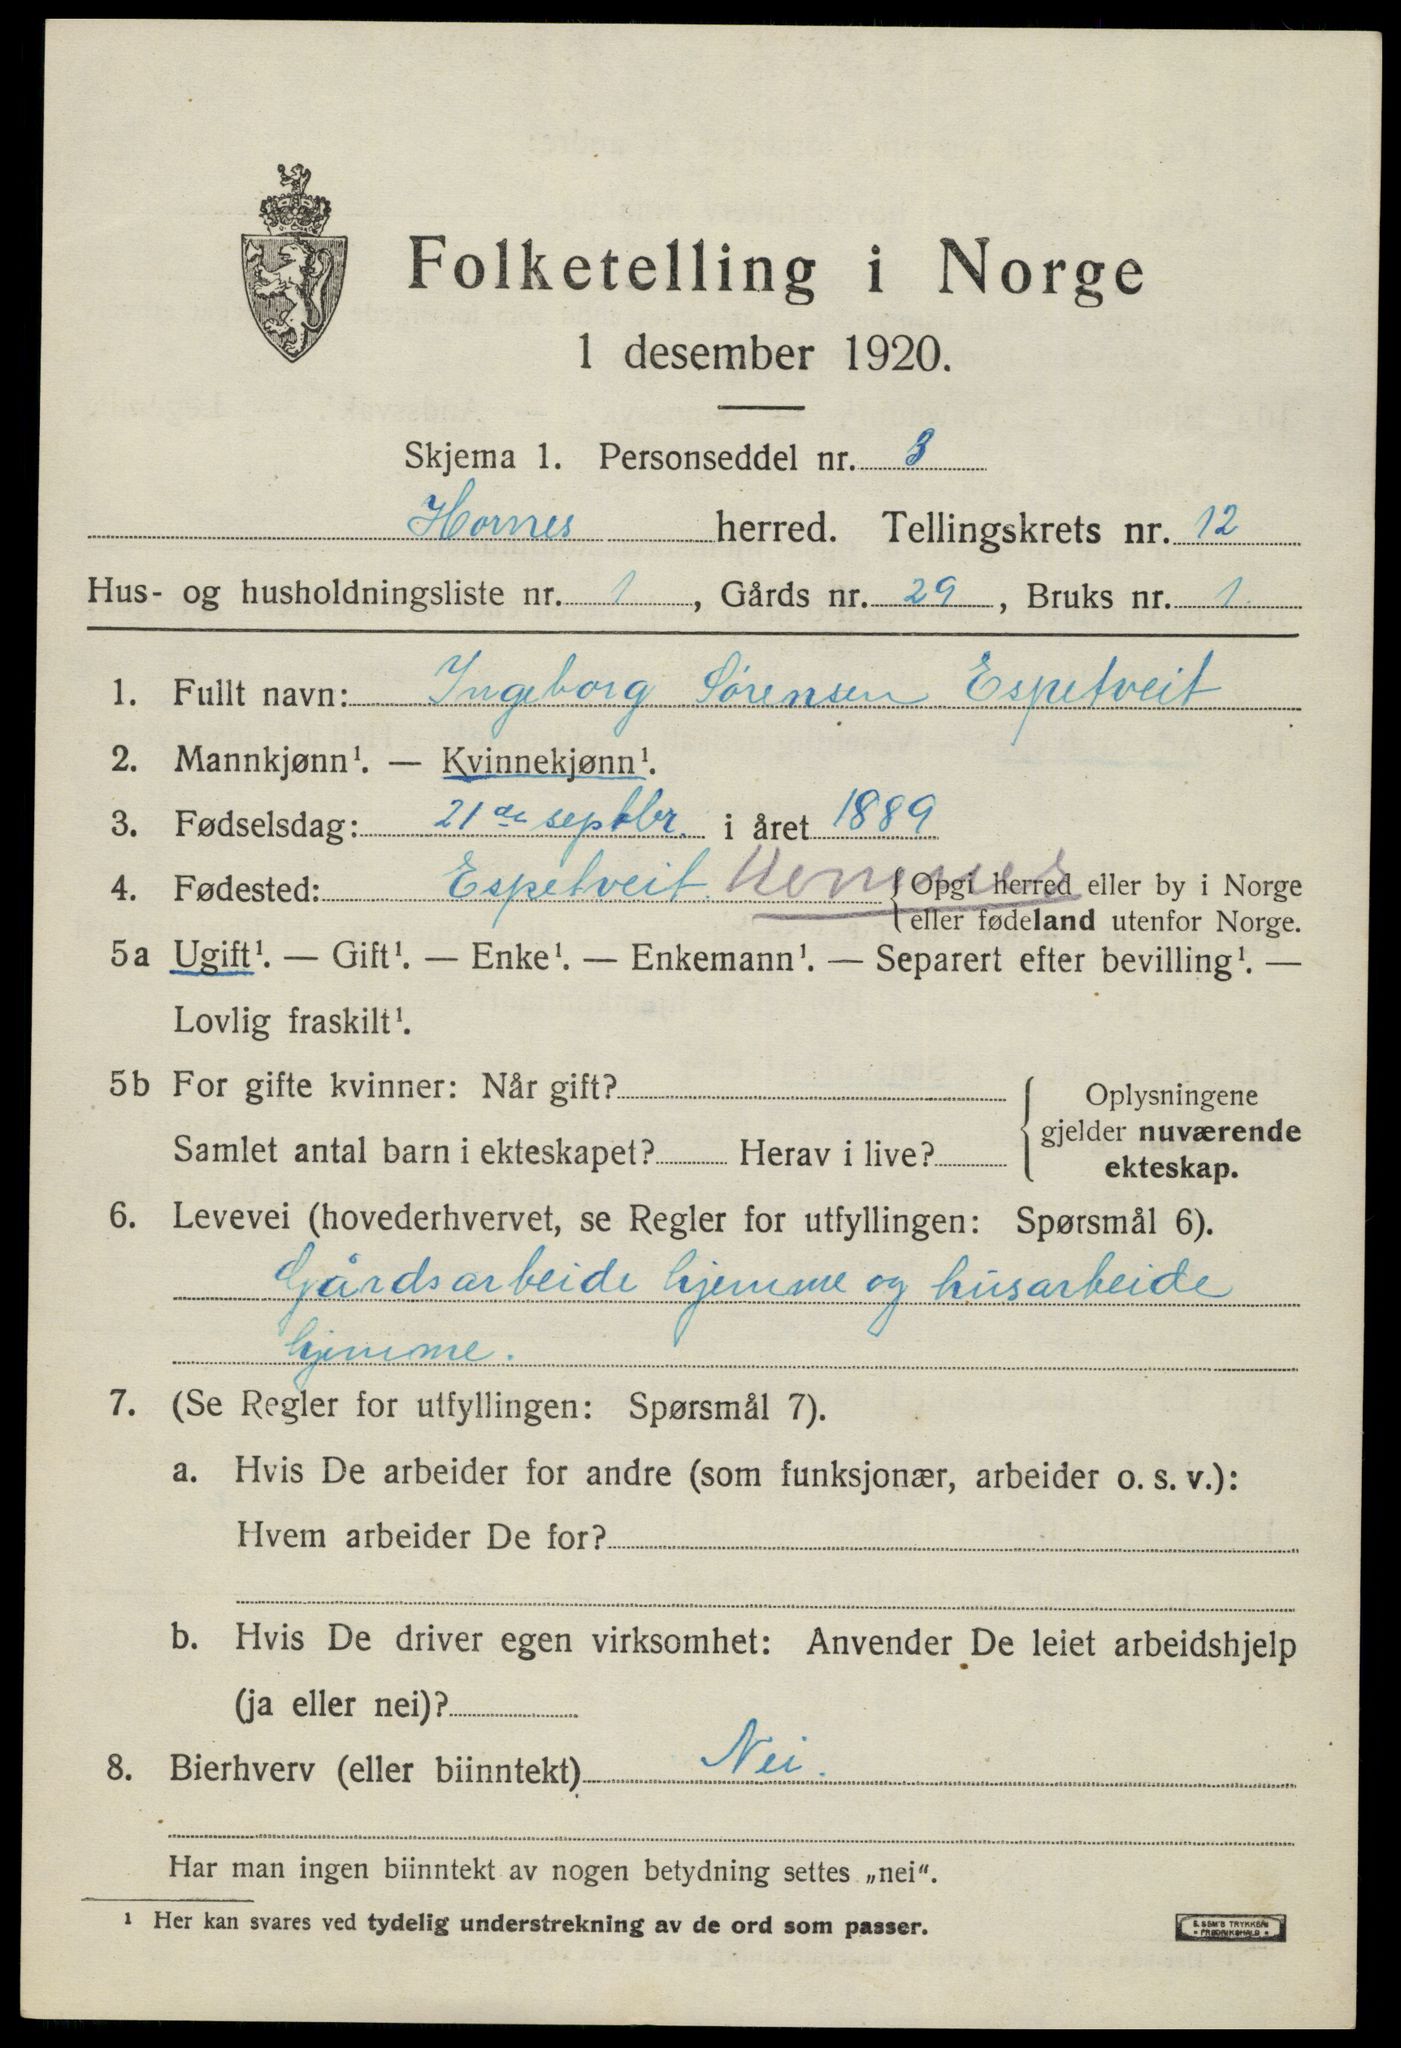 Folketelling i Norge
1 desember 1920.
Skjema 1. Personseddel nr. 3
Hornes herred. Tellingskrets nr. 12
Hus- og husholdningsliste nr. 1, Gårds nr. 29, Bruks nr. 1.
1. Fullt navn: Ingeborg Sørensen Espetveit
2. Mannkjønn¹. — Kvinnekjønn¹.
3. Fødselsdag: 21de septbr. i året 1889
4. Fødested: Espetveit. Hornnes {Opgi herred eller by i Norge
eller fødeland utenfor Norge.
5a Ugift¹. — Gift¹. — Enke¹. — Enkemann¹. — Separert efter bevilling¹. —
Lovlig fraskilt¹.
5b For gifte kvinner: Når gift?
Samlet antal barn i ekteskapet? Herav i live?
Oplysningene
gjelder nuværende
ekteskap.
6. Levevei (hovederhvervet, se Regler for utfyllingen: Spørsmål 6).
Gårdsarbeide hjemme og husarbeide
hjemme.
7. (Se Regler for utfyllingen: Spørsmål 7).
a. Hvis De arbeider for andre (som funksjonær, arbeider o. s. v.):
Hvem arbeider De for?
b. Hvis De driver egen virksomhet: Anvender De leiet arbeidshjelp
(ja eller nei)?
8. Bierhverv (eller biinntekt) Nei.
Har man ingen biinntekt av nogen betydning settes „nei“.
¹ Her kan svares ved tydelig understrekning av de ord som passer.
E. SEM'S TRYKKERI
* FREDRIKSHALD *